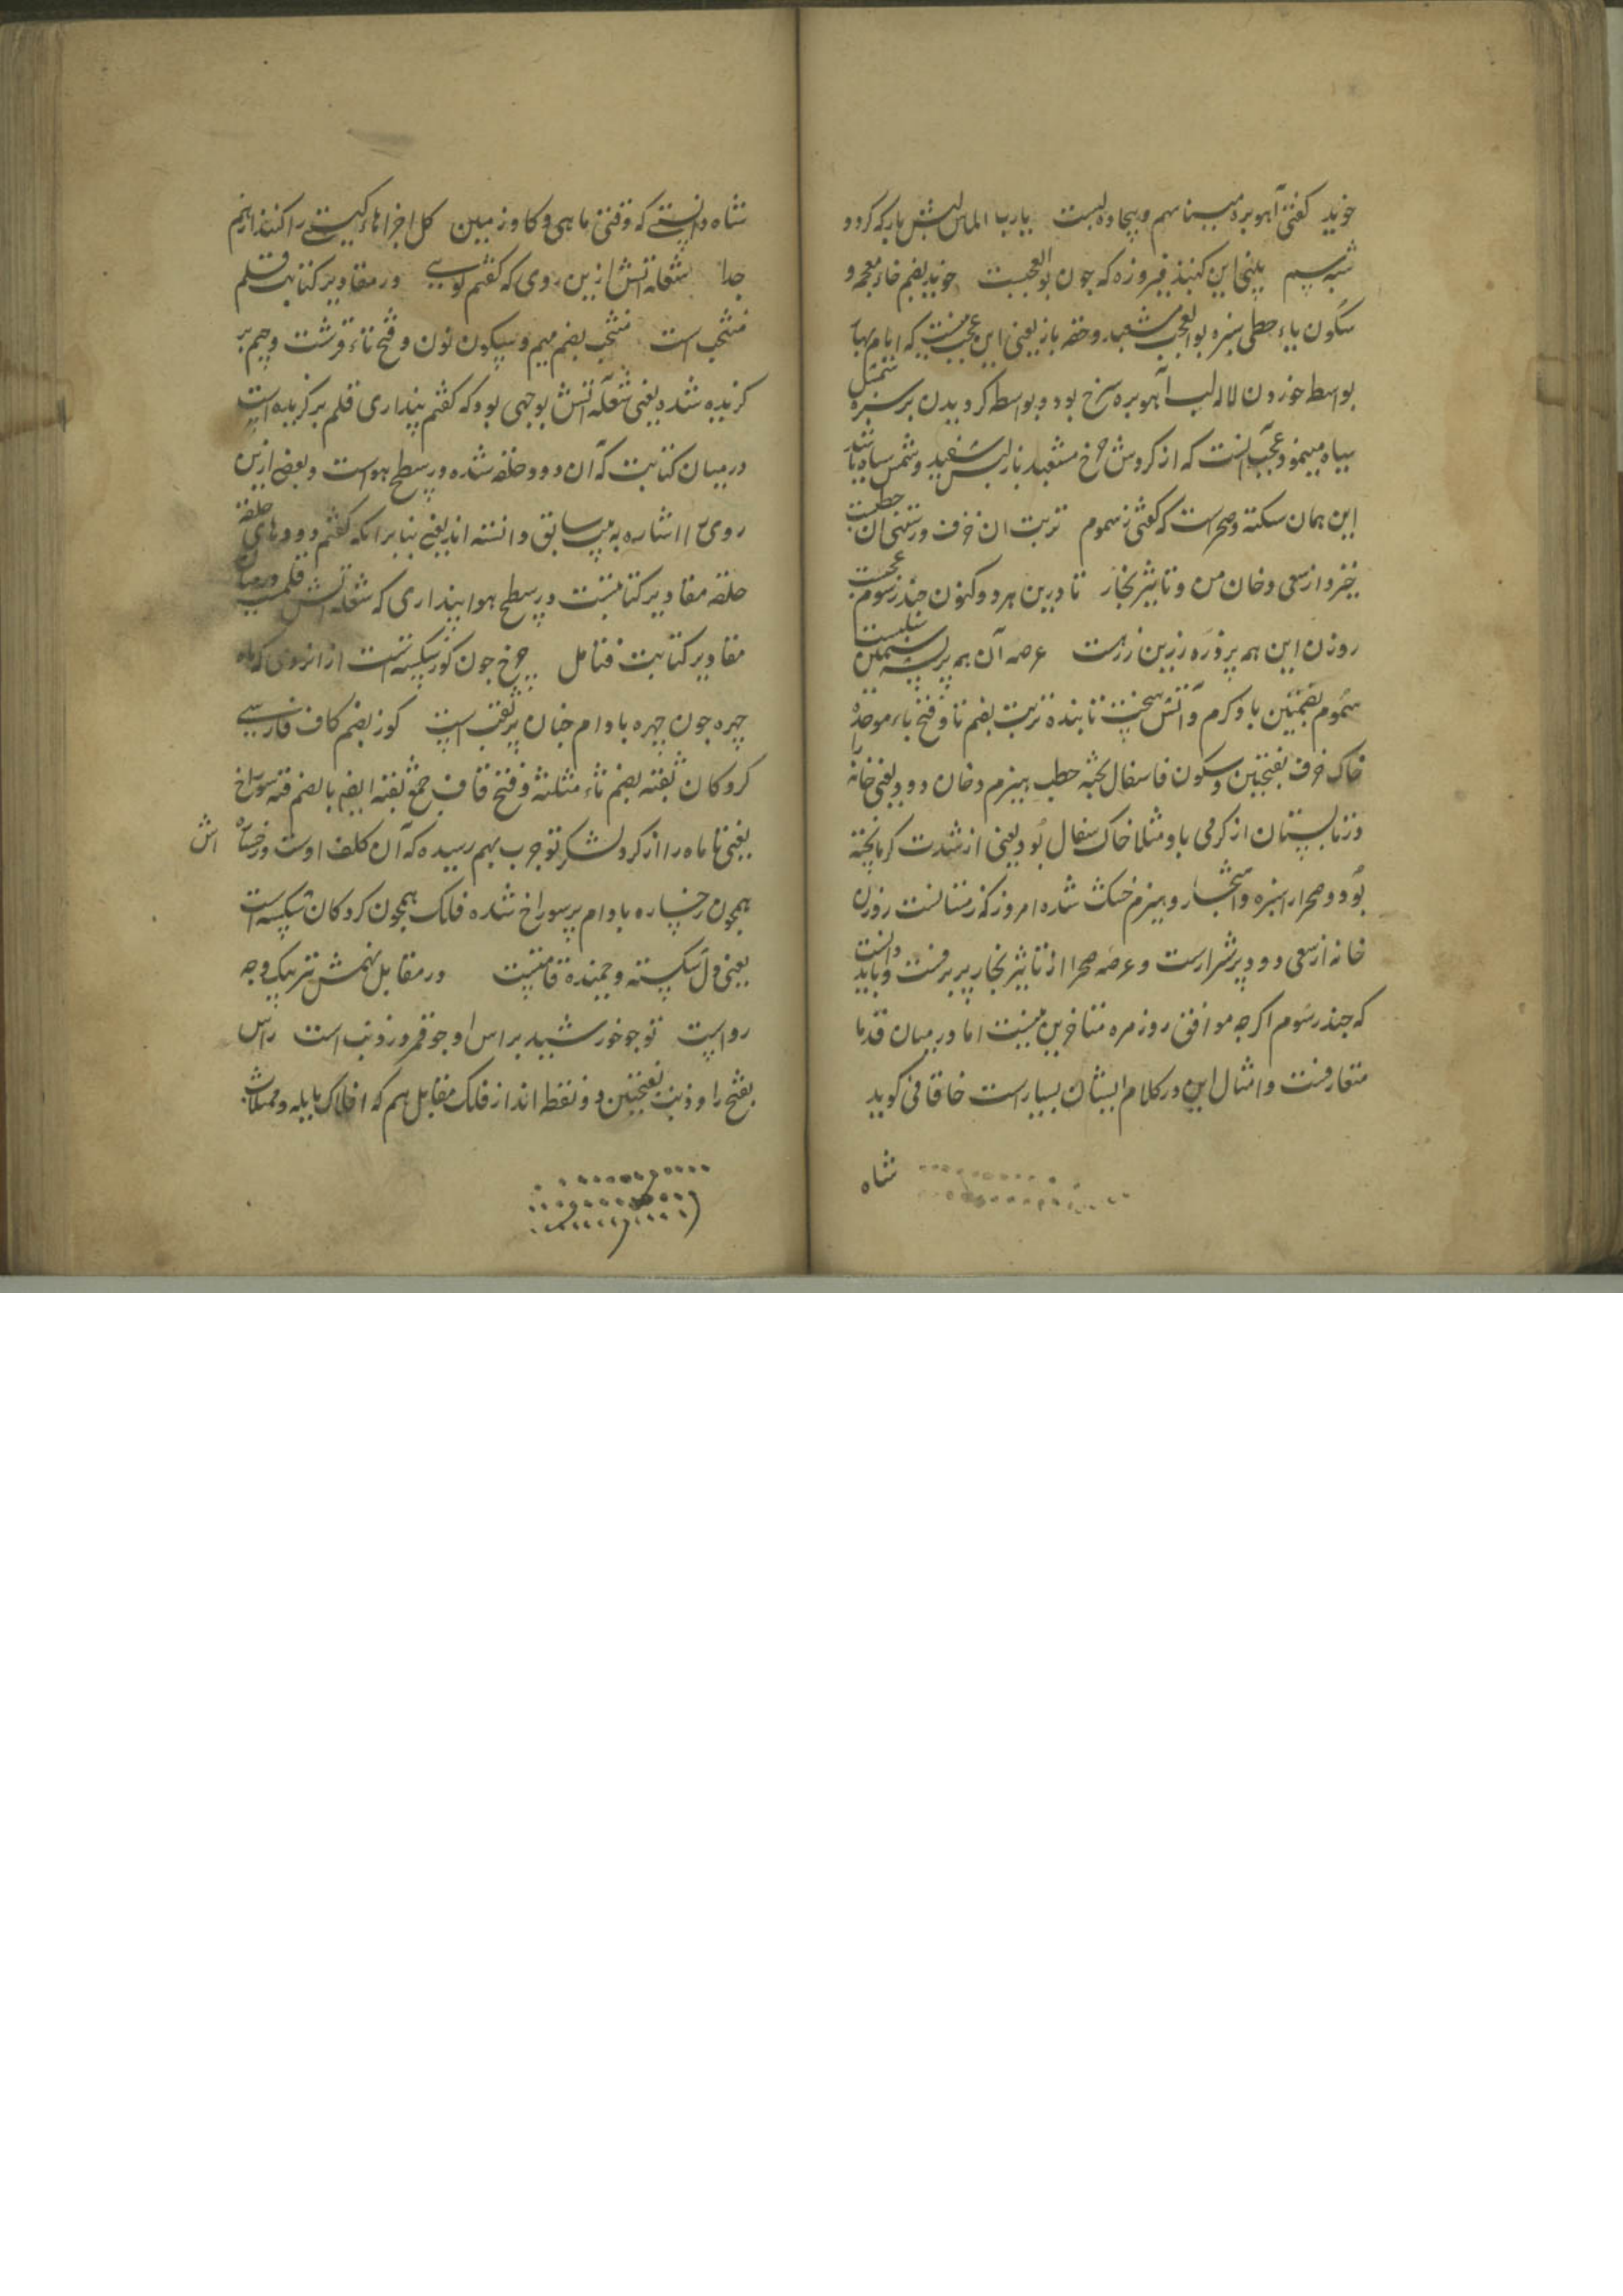 خوید کفتئ آهوبره میناسم و پیچاده لبست یارب الماس لبش باز که کرد و
شبه سم پلنی این کنبذ فیروزه که جون بوالعجبست خوید بضم خاء معجمه و
سکون یاء حطی سبزه بوالعجب مشعبد و حقه باز یعنی این عجب نیست که ایام بهار
بواسطه خوردن لاله لب آهوبره سرخ بود و بواسطه کردیدن بر سبزه سمش
سیاه مینمود عجب انست که از کردش چرخ مشعبد باز لبش سفید و سمش سیاه باشد
این همان سکنه و صحراست که کفتی ز سموم تربت ان خزف و رستنی ان حطبست
خیز و از سعی دخان من و تاثیر بخار تا درین هر دو کنون چند رسوم عجبست
روزن این همه پر ذره زرین زرهست عرصه آن همه پر پشه سیمین سلبست
سموم بضمتین باد کرم و آتش سخت تابنده تربت بضم تا و فتح باء موحده
خاک خزف بفتحتین و سکون فا سفال پخته حطب هیزم دخان دود یعنی خانه را
در تابستان از کرمی باد مثلا خاک سفال بود یعنی از شدت کرما پخته
بود و صحرا را سبزه و اشجار و هیزم خشک شده امروز که زمستانست روزن
خانه از سعی دود پر شرارست و عرصه صحرا از تاثیر بخار پر برفست و باید دانست
که چند رسوم اکرچه موافق روزمره متاخرین نیست اما در میان قدما
متعارفست و امثال این در کلام ایشان بسیارست خاقانی کوید
شاه
شاه دانستی که وقتی ماهی و کاو زمین کل اجزاهاء کیتی را کنند از هم
جدا شعله آتش ازین روی که کفتم کویی در مقادیر کتابت قلم
منتجب است منتجب بضم میم و سکون نون و فتح تاء قرشت و جیم بر
کزیده شده یعنی شعله آتش بوجهی بود که کفتم پنداری قلم برکزیده است
در میان کتابت که آن دود حلقه شده در سطح هواست و بعضی ازین
روی را اشاره به بیت سابق دانسته اند یعنی بنابرانکه کفتم دودهای حلقه
حلقه مقادیر کتابتست در سطح هوا پنداری که شعله آتش قلمست در میان
مقادیر کتابت فتامل چرخ چون کوز شکسته ست از انروی که ماه
چهره جون چهره بادام جنان پر ثقبست کوز بضم کاف فارسی
کردکان ثقبه بضم ثاء مثلثه و فتح قاف جمع ثقبه ایضا بالضم فقه سوراخ
یعنی تا ماه را از کرد لشکر تو جرب بهم رسیده که آن کلف اوست و رخساره اش
همچون رخساره بادام پر سوراخ شده فلک همچون کردکان شکسته است
یعنی دل شکسته و خمیده قامتست در مقابل نهمش نتر بیک وجه
رواست تو جو خورشید براس او جو قمر در ذنب است راس
بفتح را و ذنب بفتحتین دو نقطه اند از فلک مقابل هم که افلاک مایله و ممثلات